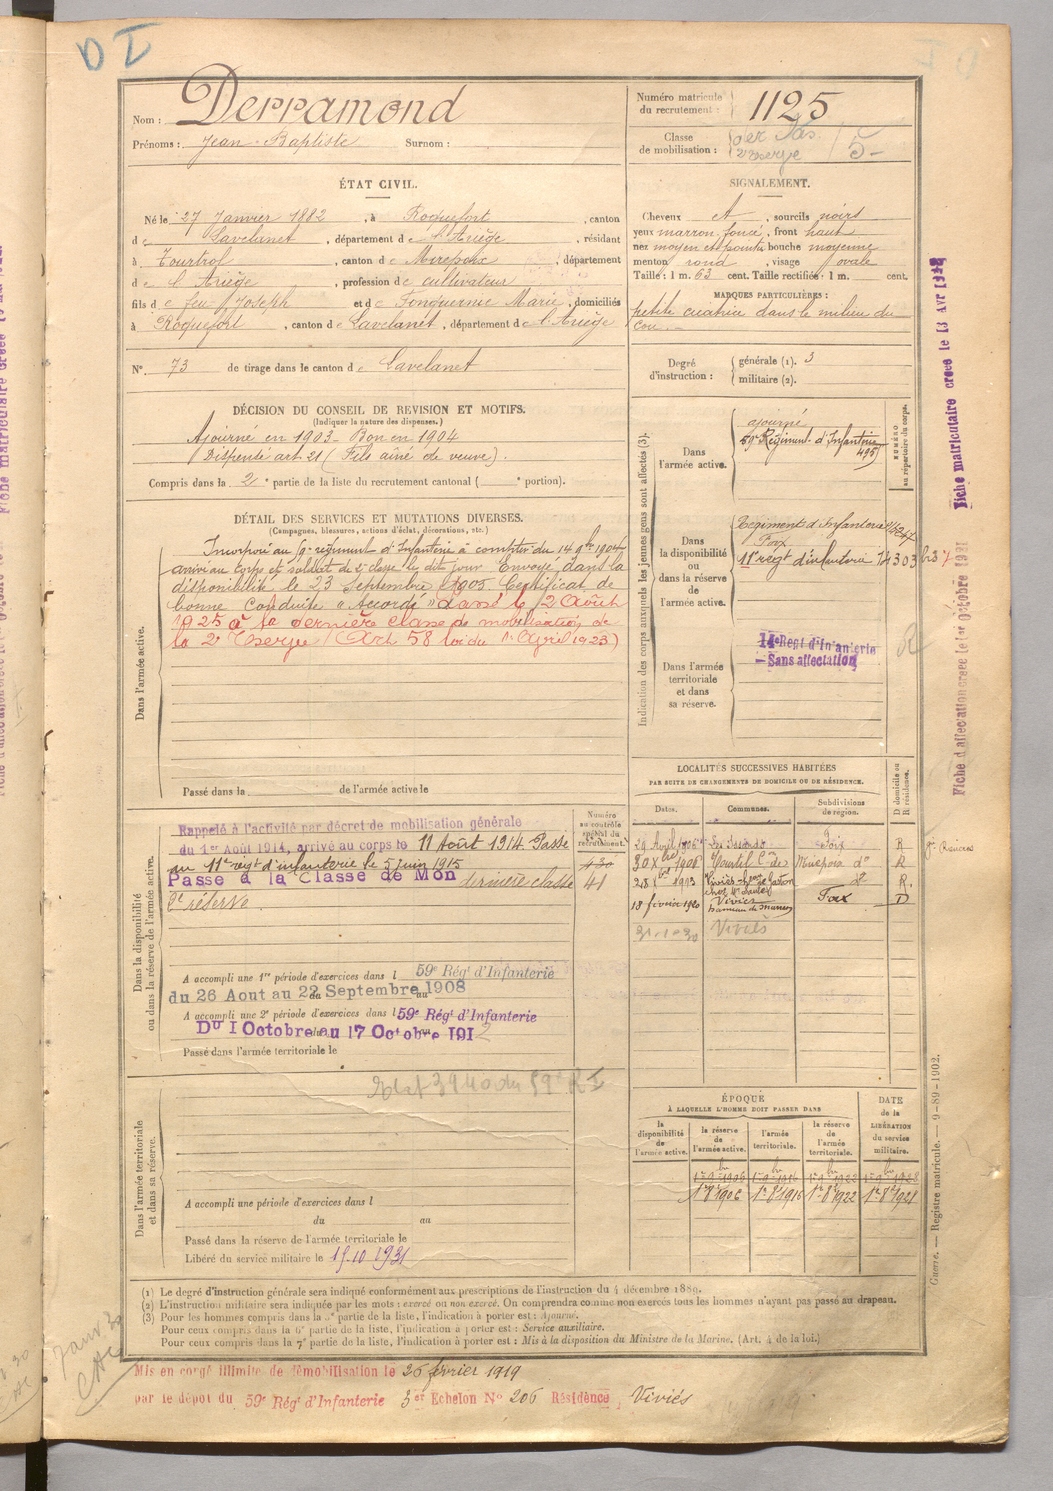 D I
Nom : Derramond
Prénoms : Jean-Baptiste Surnom :
Numéro matricule du recrutement : 1125
Classe de mobilisation : 5
ÉTAT CIVIL.
Né le 27 Janvier 1882, à Roquefort, canton
de Lavelanet, département de l'Ariège, résidant
à Tourtrol, canton de Mirepoix, département
de l'Ariège, profession de cultivateur
fils de feu Joseph et de Fonquernie Marie, domiciliés
à Roquefort, canton de Lavelanet, département de l'Ariège
N° 73 de tirage dans le canton de Lavelanet
SIGNALEMENT.
Cheveux et, sourcils noirs
yeux marron foncé, front haut
nez moyen et pointu bouche moyenne
menton rond, visage ovale
Taille : 1 m. 63 cent. Taille rectifiée : 1 m. cent.
MARQUES PARTICULIÈRES :
petite cicatrice dans le milieu du
cou.
Degré d'instruction : générale (1). 3
militaire (2).
DÉCISION DU CONSEIL DE REVISION ET MOTIFS.
(Indiquer la nature des dispenses.)
Ajourné en 1903 - Bon en 1904
Dispensé art. 21 (Fils aîné de veuve).
Compris dans la 2e partie de la liste du recrutement cantonal ( e portion).
DÉTAIL DES SERVICES ET MUTATIONS DIVERSES.
(Campagnes, blessures, actions d'éclat, décorations, etc.)
Dans l'armée active.
Incorporé au 59e régiment d'Infanterie à compter du 14 9bre 1904
arrivé au corps et soldat de 2e classe le dit jour. Envoyé dans la
disponibilité le 23 Septembre 1905. Certificat de
bonne conduite "Accordé" Classé le 2 Août
1925 à la dernière classe de mobilisation de
la 2e réserve (Art 58 loi du 1er Avril 1923)
Passé dans la de l'armée active le
Indication des corps auxquels les jeunes gens sont affectés (3).
NUMÉRO au répertoire du corps.
Dans l'armée active.
ajourné
59e Régiment d'Infanterie
495
Dans la disponibilité ou dans la réserve de l'armée active.
Régiment d'Infanterie
Foix
11e régt d'infanterie 14303
Dans l'armée territoriale et dans sa réserve.
14e Regt d'Infanterie
- Sans affectation
R
LOCALITÉS SUCCESSIVES HABITÉES
PAR SUITE DE CHANGEMENTS DE DOMICILE OU DE RÉSIDENCE.
D domicile ou R résidence.
Dates. Communes. Subdivisions de région.
29 Avril 1906 Foix R
1908 Mirepoix do R
Viviès R.
18 février 1920 Viviès Foix D
Viviès
Dans la disponibilité ou dans la réserve de l'armée active.
Numéro au contrôle spécial du recrutement.
Rappelé à l'activité par décret de mobilisation générale
du 1er Août 1914, arrivé au corps le 11 Août 1914. Passé
au 11e régt d'infanterie le 5 juin 1915
Passé à la Classe de Mon dernière classe
2e réserve.
430
41
A accompli une 1re période d'exercices dans l 59e Régt d'Infanterie
du 26 Aout au 22 Septembre 1908
A accompli une 2e période d'exercices dans l 59e Régt d'Infanterie
Du 1 Octobre au 17 Octobre 1912
Passé dans l'armée territoriale le
Dans l'armée territoriale et dans sa réserve.
A accompli une période d'exercices dans l
du au
Passé dans la réserve de l'armée territoriale le
Libéré du service militaire le 15.10.1931
ÉPOQUE
À LAQUELLE L'HOMME DOIT PASSER DANS
DATE de la LIBÉRATION du service militaire.
la disponibilité de l'armée active. la réserve de l'armée active. l'armée territoriale. la réserve de l'armée territoriale.
1er 9bre 1906
1er 8bre 1906 1er 8bre 1916 1er 8bre 1922
(1) Le degré d'instruction générale sera indiqué conformément aux prescriptions de l'instruction du 4 décembre 1889.
(2) L'instruction militaire sera indiquée par les mots : exercé ou non exercé. On comprendra comme non exercés tous les hommes n'ayant pas passé au drapeau.
(3) Pour les hommes compris dans la 5e partie de la liste, l'indication à porter est : Ajourné.
Pour ceux compris dans la 6e partie de la liste, l'indication à porter est : Service auxiliaire.
Pour ceux compris dans la 7e partie de la liste, l'indication à porter est : Mis à la disposition du Ministre de la Marine. (Art. 4 de la loi.)
Mis en congé illimité de démobilisation le 26 février 1919
par le dépôt du 59e Régt d'Infanterie 3er Echelon N° 206 Résidence, Viviès
Fiche matriculaire créée le 13 Avr
Fiche d'affectation créée le 1er octobre 1921
Guerre. — Registre matricule. — 9-89-1902.